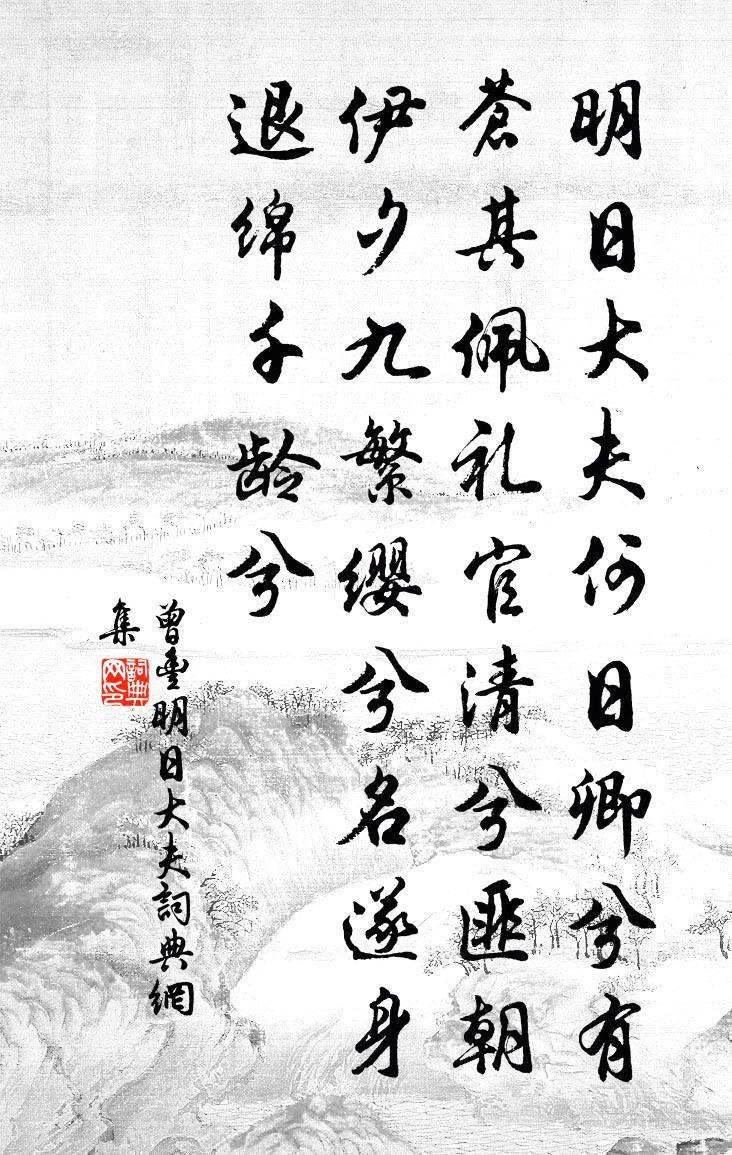 明日大夫何日卿兮有
苍其佩礼官清兮匪朝
伊夕九繁缨兮名遂身
退绵千龄兮
曾豊明日大夫詞典網
集
詞典
网印